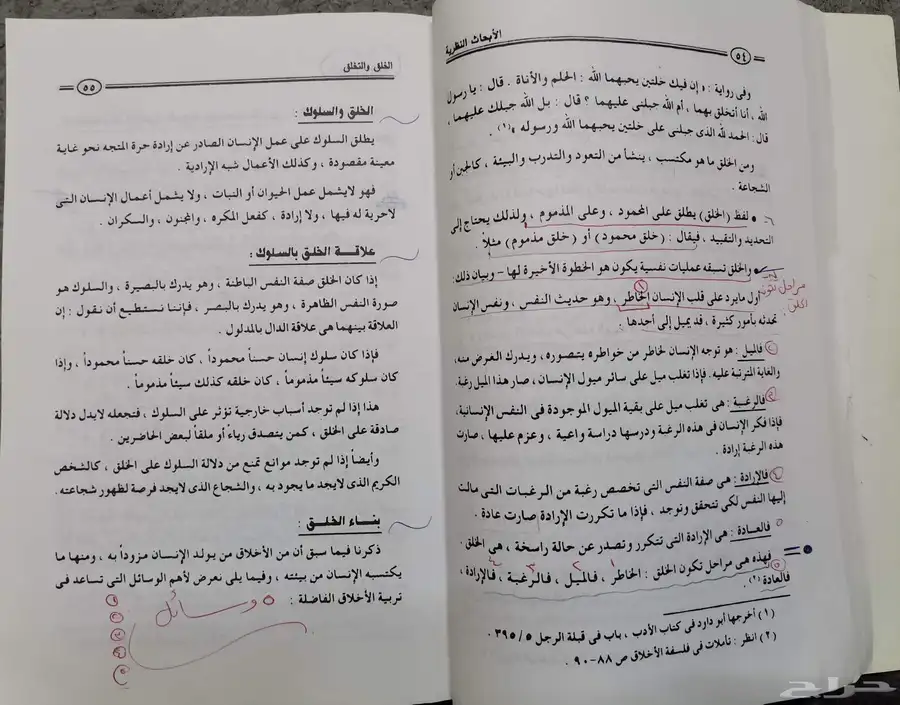 الأبحاث النظرية
٥٤
وفى رواية : « إن فيك خلتين يحبهما الله : الحلم والأناة . قال : يا رسول
الله ، أنا أتخلق بهما ، أم الله جبلنى عليهما ؟ قال : بل الله جبلك عليهما ،
قال : الحمد لله الذى جبلنى على خلتين يحبهما الله ورسوله »(١) .
ومن الخلق ما هو مكتسب ، ينشأ من التعود والتدرب والبيئة ، كالجبن أو
الشجاعة .
• لفظ (الخلق) يطلق على المحمود ، وعلى المذموم ، ولذلك يحتاج إلى
التحديد والتقييد ، فيقال : (خلق محمود) أو (خلق مذموم) مثلاً .
• والخلق تسبقه عمليات نفسية يكون هو الخطوة الأخيرة لها – وبيان ذلك :
مراحل تكون
الخلق
أول مايرد على قلب الإنسان الخاطر ، وهو حديث النفس ، ونفس الإنسان
تحدثه بأمور كثيرة ، قد يميل إلى أحدها .
فالميل : هو توجه الإنسان لخاطر من خواطره يتصوره ، ويدرك الغرض منه ،
والغاية المترتبة عليه . فإذا تغلب ميل على سائر ميول الإنسان ، صار هذا الميل رغبة .
فالرغبة : هى تغلب ميل على بقية الميول الموجودة فى النفس الإنسانية ،
فإذا فكر الإنسان فى هذه الرغبة ودرسها دراسة واعية ، وعزم عليها ، صارت
هذه الرغبة إرادة .
فالإرادة : هى صفة النفس التى تخصص رغبة من الرغبات التى مالت
إليها النفس لكى تتحقق وتوجد ، فإذا ما تكررت الإرادة صارت عادة .
فالعادة : هى الإرادة التى تتكرر وتصدر عن حالة راسخة ، هى الخلق .
فهذه هى مراحل تكون الخلق : الخاطر ، فالميل ، فالرغبة ، فالإرادة ،
فالعادة (٢) .
(١) أخرجها أبو دارد فى كتاب الأدب ، باب فى قبلة الرجل ٥ / ٣٩٥ .
(٢) انظر : تأملات فى فلسفة الأخلاق ص ٨٨-٩٠ .
الخلق والتخلق
٥٥
الخلق والسلوك :
يطلق السلوك على عمل الإنسان الصادر عن إرادة حرة المتجه نحو غاية
معينة مقصودة ، وكذلك الأعمال شبه الإرادية .
فهو لايشمل عمل الحيوان أو النبات ، ولا يشمل أعمال الإنسان التى
لاحرية له فيها ، ولا إرادة ، كفعل المكره ، والمجنون ، والسكران .
علاقة الخلق بالسلوك :
إذا كان الخلق صفة النفس الباطنة ، وهو يدرك بالبصيرة ، والسلوك هو
صورة النفس الظاهرة ، وهو يدرك بالبصر ، فإننا نستطيع أن نقول : إن
العلاقة بينهما هى علاقة الدال بالمدلول .
فإذا كان سلوك إنسان حسناً محموداً ، كان خلقه حسناً محموداً ، وإذا
كان سلوكه سيئاً مذموماً ، كان خلقه كذلك سيئاً مذموماً .
هذا إذا لم توجد أسباب خارجية تؤثر على السلوك ، فتجعله لايدل دلالة
صادقة على الخلق ، كمن يتصدق رياءً أو ملقاً لبعض الحاضرين .
وأيضاً إذا لم توجد موانع تمنع من دلالة السلوك على الخلق ، كالشخص
الكريم الذى لايجد ما يجود به ، والشجاع الذى لايجد فرصة لظهور شجاعته .
بناء الخلق :
ذكرنا فيما سبق أن من الأخلاق من يولد الإنسان مزوداً به ، ومنها ما
يكتسبه الإنسان من بيئته ، وفيما يلى نعرض لأهم الوسائل التى تساعد فى
تربية الأخلاق الفاضلة :
٥ وسائل
١
٢
٣
٤
٥
حراج